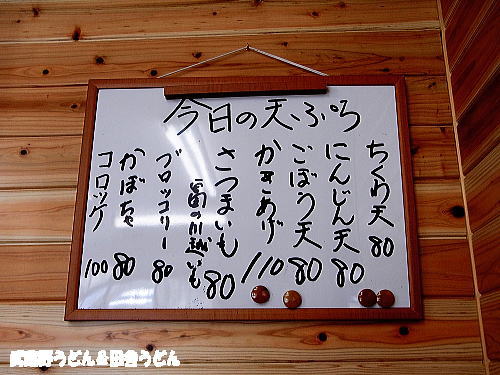 今日の天ぷら
ちくわ天 80
にんじん天 80
ごぼう天 80
かきあげ 110
さつまいも 80
富の川越いも
ブロッコリー 80
かぼちゃ 80
コロッケ 100
武蔵野うどん&田舎うどん